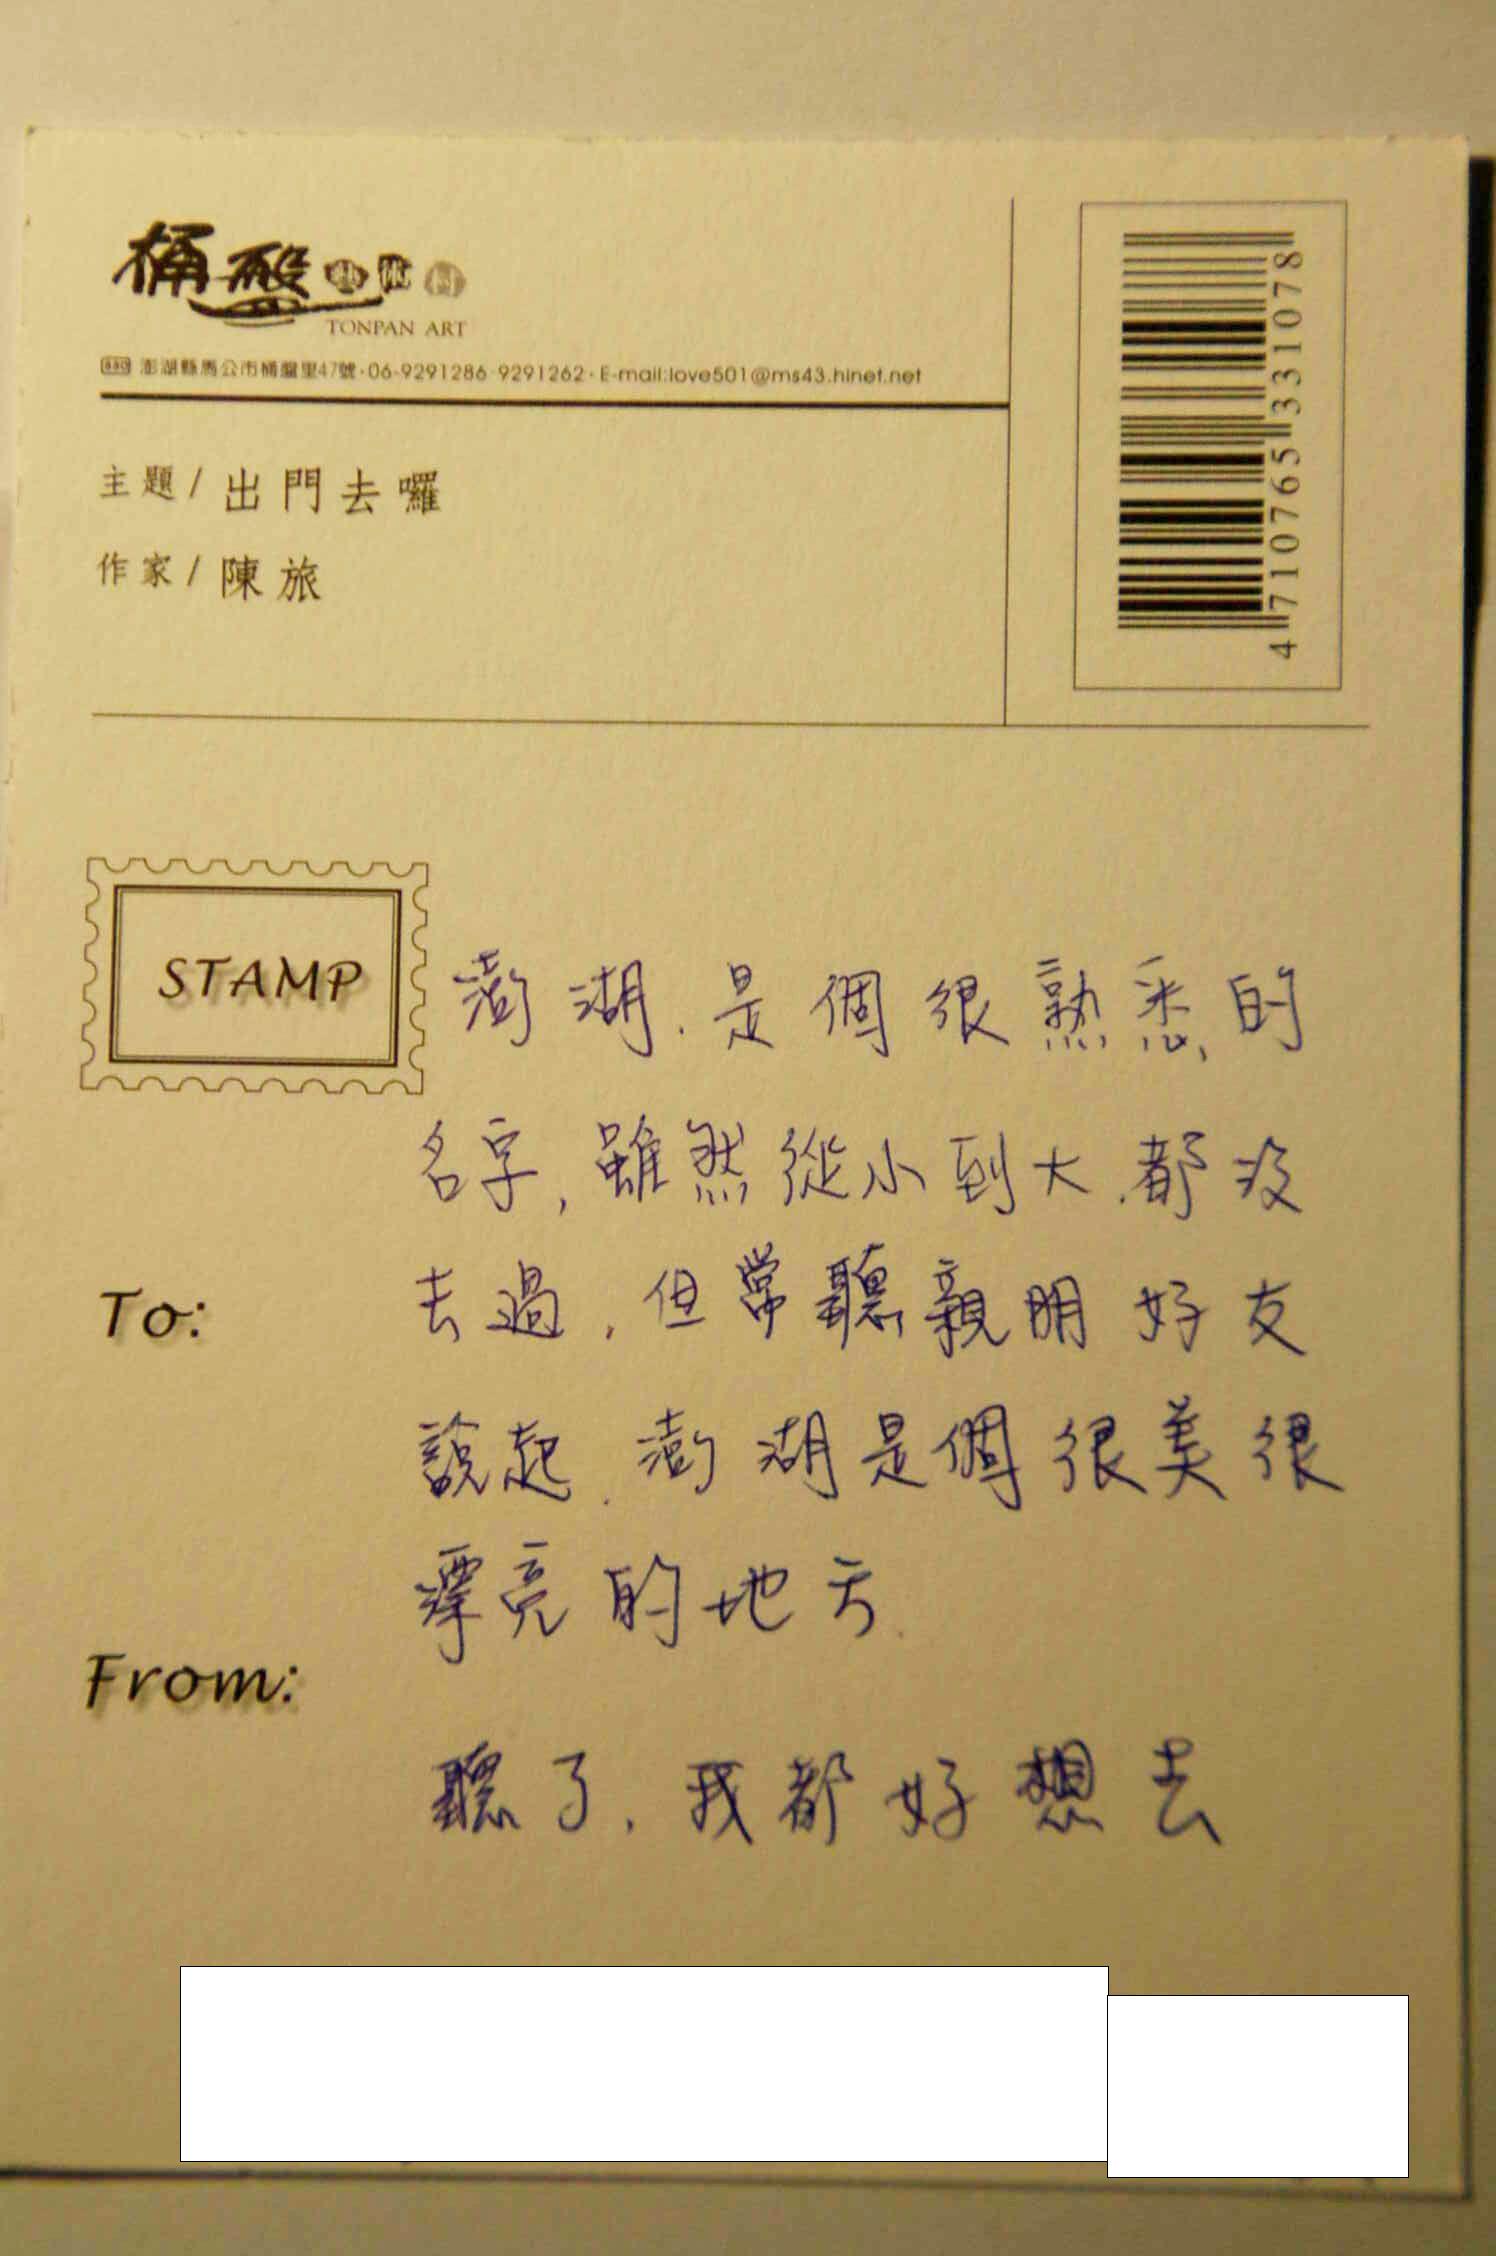 桶盤藝術村
TONPAN ART
880 澎湖縣馬公市桶盤里47號·06-9291286·9291262·E-mail:love501@ms43.hinet.net
主題/出門去囉
作家/陳旅
4 710765 331078
STAMP
澎湖.是個很熟悉的
名字,雖然從小到大.都沒
To:
去過,但常聽親朋好友
說起.澎湖是個很美很
漂亮的地方.
From:
聽了,我都好想去